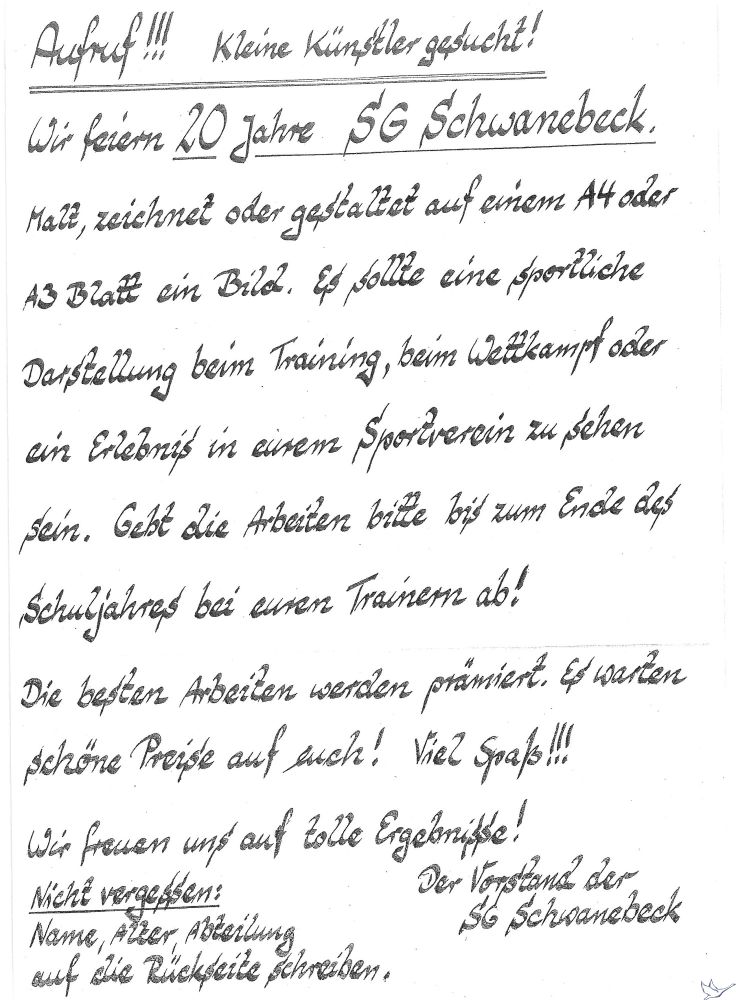 Aufruf!!! Kleine Künstler gesucht!
Wir feiern 20 Jahre SG Schwanebeck.
Malt, zeichnet oder gestaltet auf einem A4 oder
A3 Blatt ein Bild. Es sollte eine sportliche
Darstellung beim Training, beim Wettkampf oder
ein Erlebnis in eurem Sportverein zu sehen
sein. Gebt die Arbeiten bitte bis zum Ende des
Schuljahres bei euren Trainern ab!
Die besten Arbeiten werden prämiert. Es warten
schöne Preise auf euch! Viel Spaß!!!
Wir freuen uns auf tolle Ergebnisse!
Der Vorstand der
SG Schwanebeck
Nicht vergessen:
Name, Alter, Abteilung
auf die Rückseite schreiben.